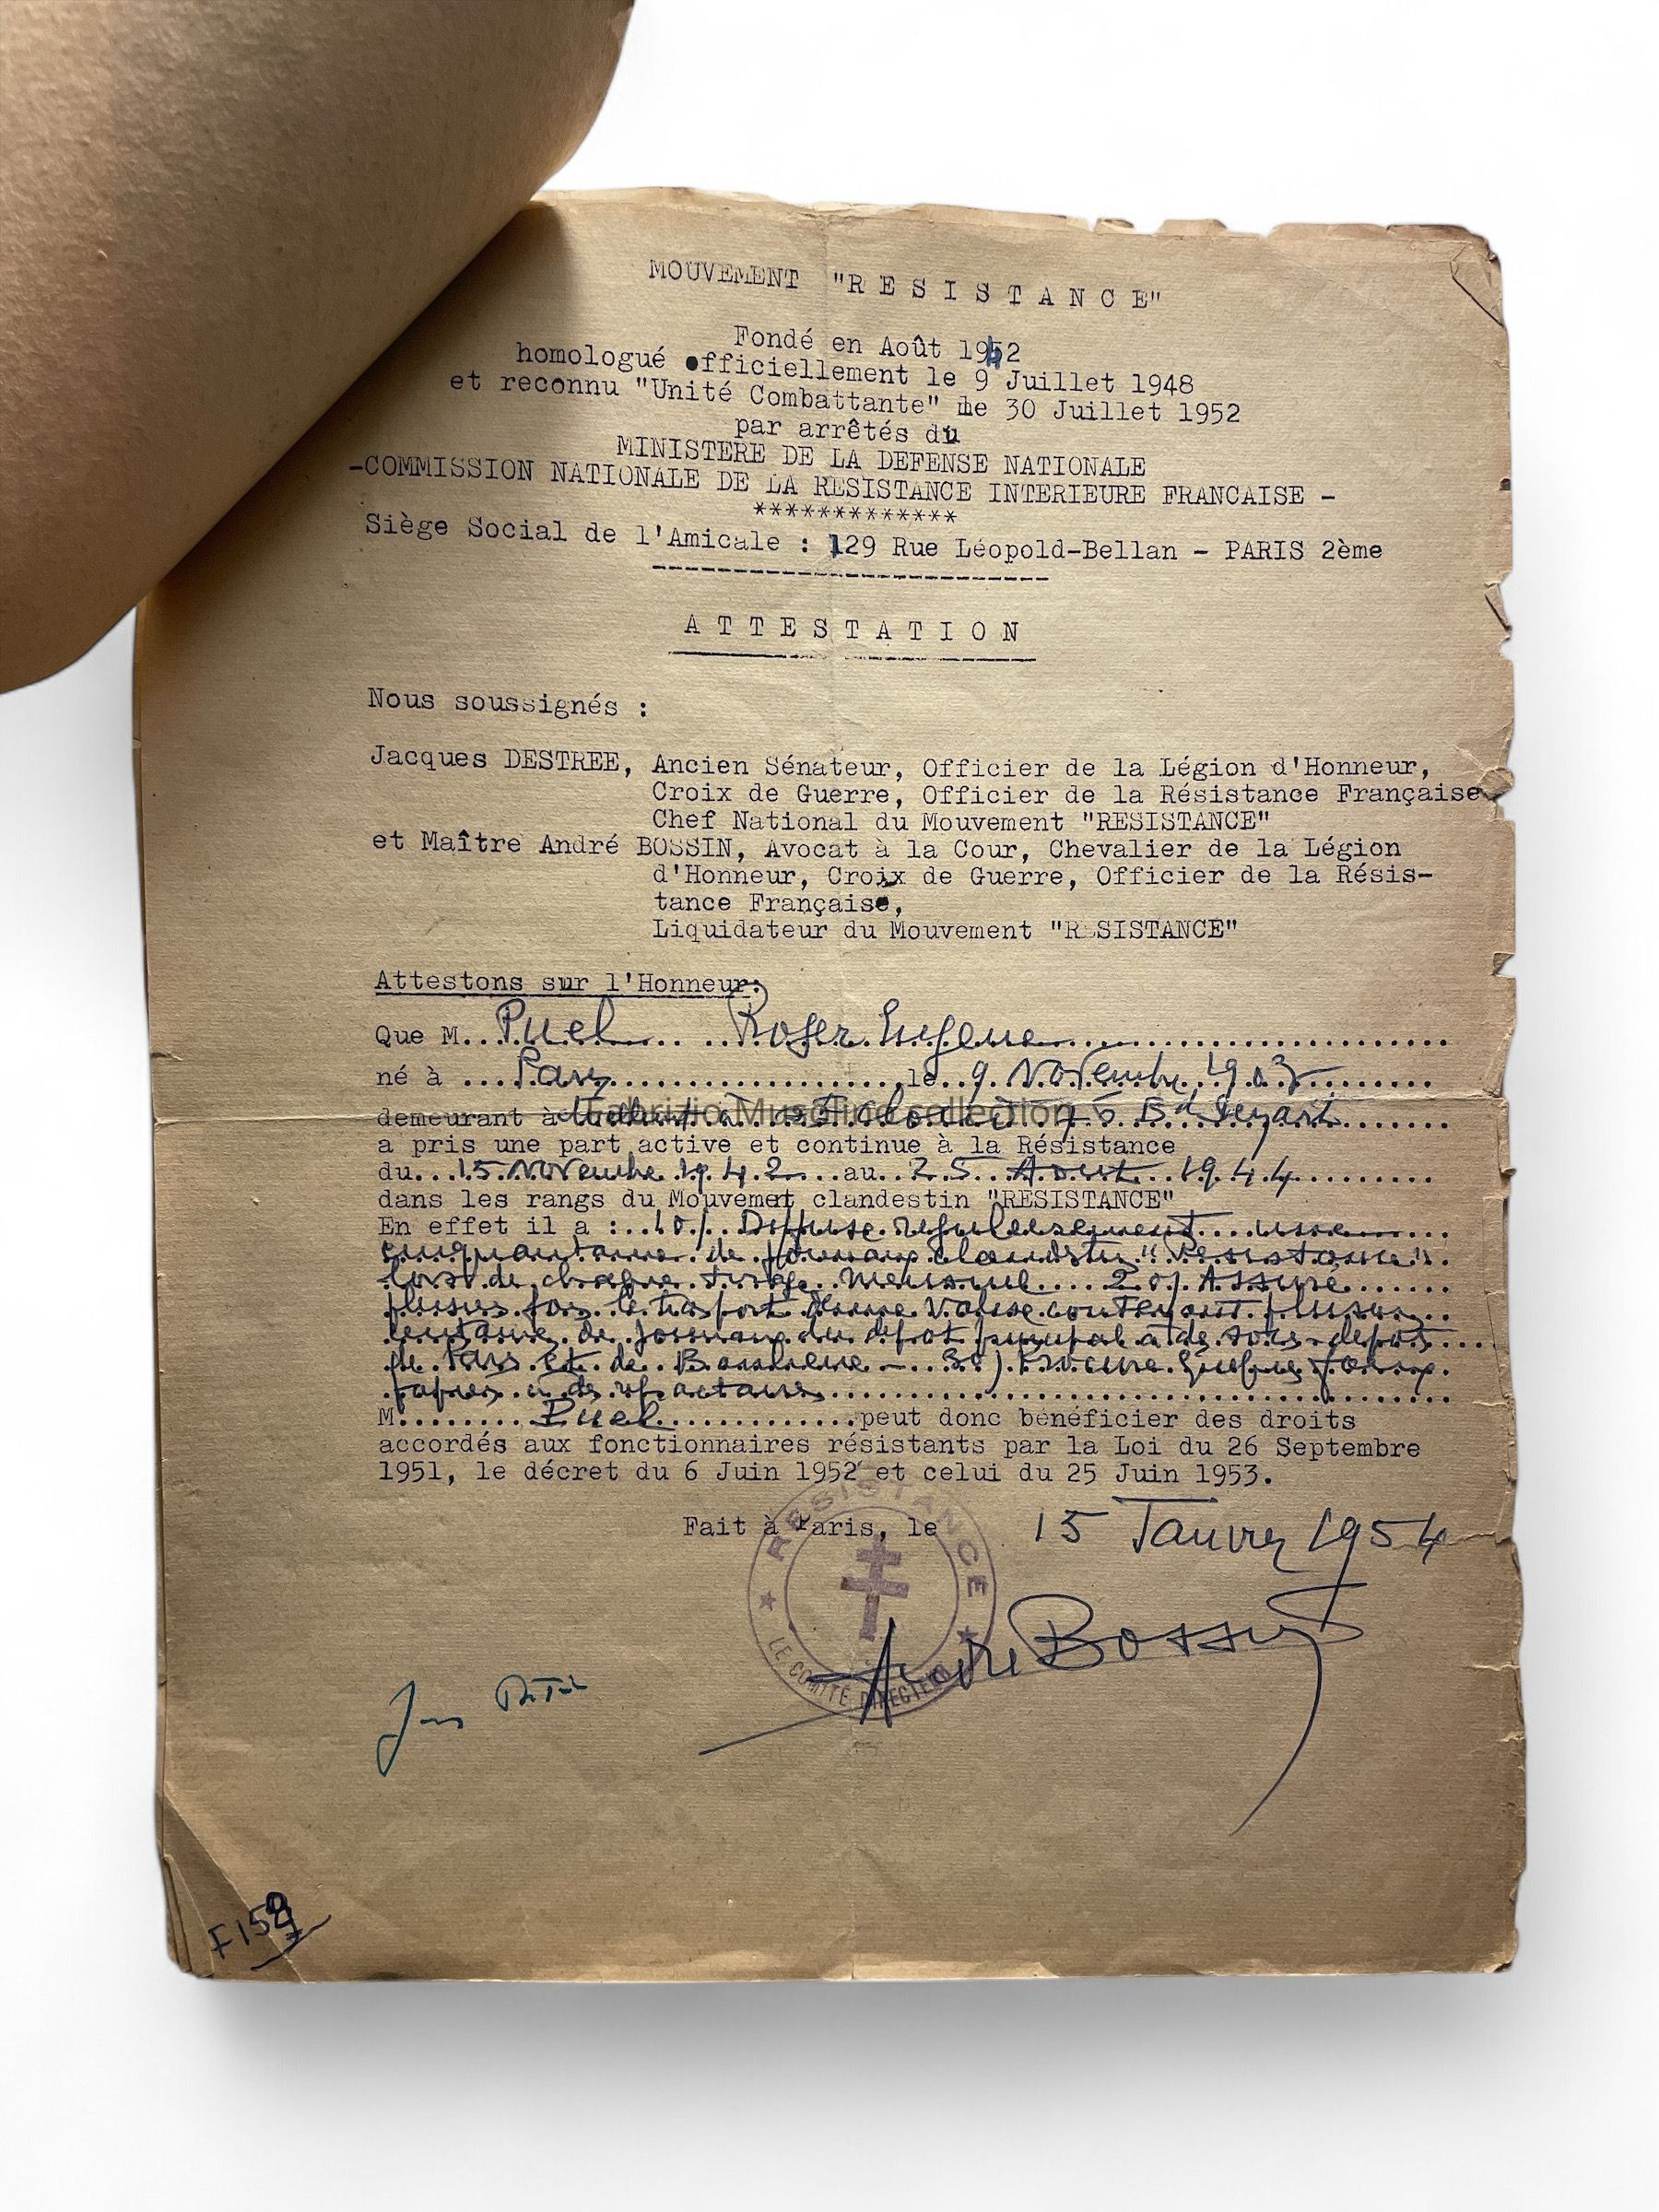 MOUVEMENT "R E S I S T A N C E"
Fondé en Août 1942
homologué officiellement le 9 Juillet 1948
et reconnu "Unité Combattante" le 30 Juillet 1952
par arrêtés du
MINISTERE DE LA DEFENSE NATIONALE
-COMMISSION NATIONALE DE LA RESISTANCE INTERIEURE FRANCAISE -
*************
Siège Social de l'Amicale : 129 Rue Léopold-Bellan - PARIS 2ème
A T T E S T A T I O N
Nous soussignés :
Jacques DESTREE, Ancien Sénateur, Officier de la Légion d'Honneur,
Croix de Guerre, Officier de la Résistance Française
Chef National du Mouvement "RESISTANCE"
et Maître André BOSSIN, Avocat à la Cour, Chevalier de la Légion
d'Honneur, Croix de Guerre, Officier de la Résis-
tance Française,
Liquidateur du Mouvement "RESISTANCE"
Attestons sur l'Honneur:
Que M... Puel Roger Eugene
né à .... Paris ..... le .. 9 Novembre 1903
demeurant à 75 Bd
Fabrizio Musolino collection
a pris une part active et continue à la Résistance
du... 15 Novembre 1942 ... au .. 25 Aout 1944
dans les rangs du Mouvemet clandestin "RESISTANCE"
En effet il a : .. 10/ Diffuse regulierement une
cinquantaine de journaux clandestin "Resistance"
lors de chaque tirage mensuel .... 20/ Assure
plusieurs fois le trasport d'une valise contenant plusieurs
centaine de journaux du depot principal a des sous-depots
de Paris et de Banlieue - 30) Procure quelques faux
papiers a des refractaires
M........ Puel ..............peut donc bénéficier des droits
accordés aux fonctionnaires résistants par la Loi du 26 Septembre
1951, le décret du 6 Juin 1952 et celui du 25 Juin 1953.
Fait à Paris, le 15 Janvier 1954
RESISTANCE
LE COMITÉ DIRECTEUR
André Bossin
F 158